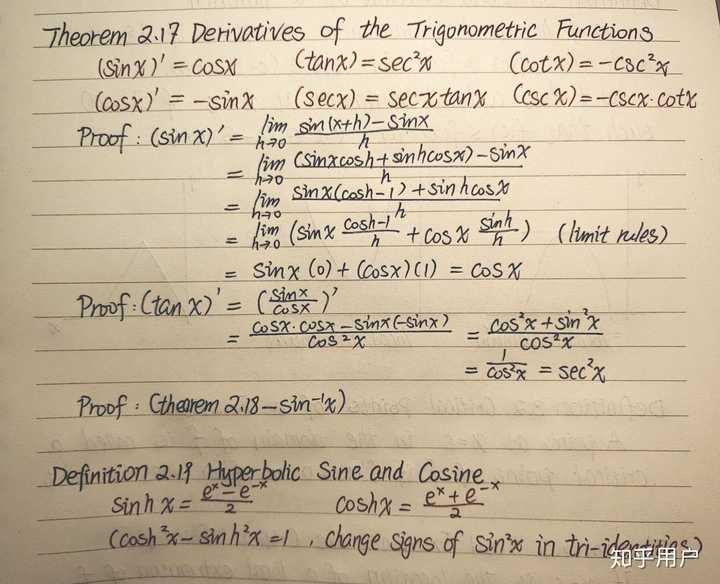 Theorem 2.17 Derivatives of the Trigonometric Functions
(sin x)' = cosx (tanx) = sec²x (cotx) = -csc²x
(cosx)' = -sinx (secx) = secx tanx (cscx) = -cscx·cotx
Proof: (sin x)' = lim h→0 (sin(x+h) - sinx)/h
= lim h→0 ((sinxcosh + sinhcosx) - sinx)/h
= lim h→0 (sinx(cosh-1) + sinhcosx)/h
= lim h→0 (sinx (cosh-1)/h + cosx (sinh)/h) (limit rules)
= sinx (0) + (cosx)(1) = cosx
Proof: (tanx)' = (sinx/cosx)'
= (cosx·cosx - sinx(-sinx))/cos²x = (cos²x + sin²x)/cos²x
= 1/cos²x = sec²x
Proof: (theorem 2.18 - sin⁻¹x)
Definition 2.19 Hyperbolic Sine and Cosine
sinh x = (eˣ - e⁻ˣ)/2 coshx = (eˣ + e⁻ˣ)/2
(cosh²x - sinh²x = 1, change signs of sin²x in tri-identities)
知乎用户